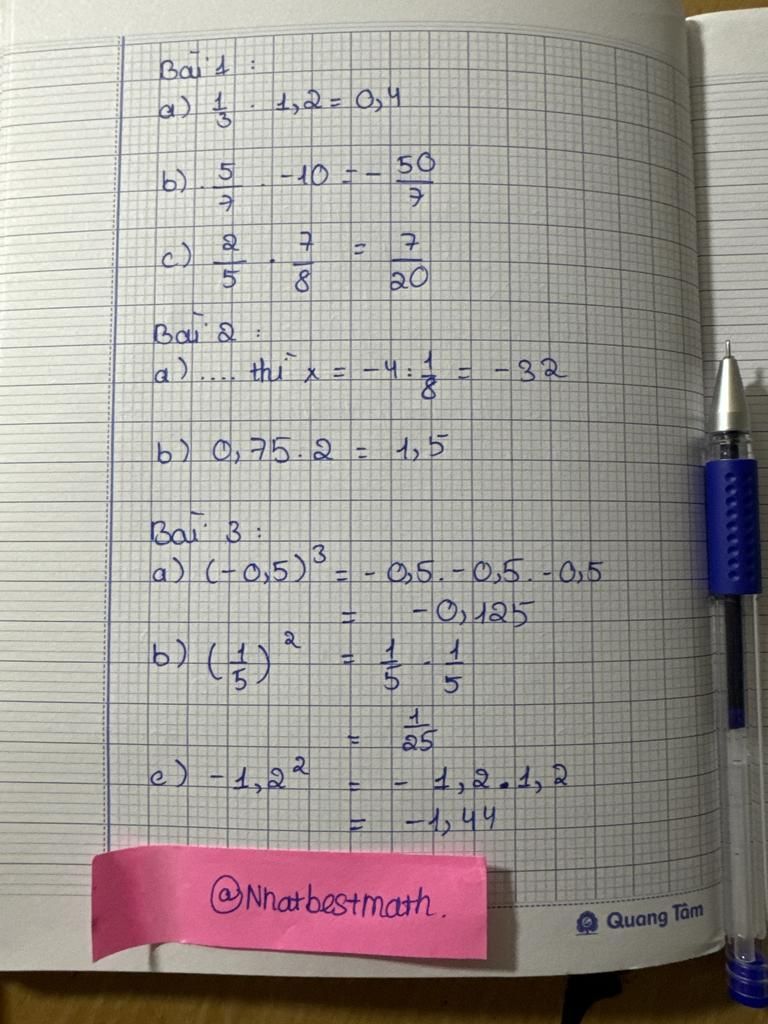 Bài 1 :
a) 1/3 . 1,2 = 0,4
b) 5/7 . -10 = - 50/7
c) 2/5 . 7/8 = 7/20
Bài 2 :
a) .... thì x = -4 : 1/8 = -32
b) 0,75 . 2 = 1,5
Bài 3 :
a) (-0,5)³ = - 0,5 . - 0,5 . - 0,5
= -0,125
b) (1/5)² = 1/5 . 1/5
= 1/25
c) -1,2² = - 1,2 . 1,2
= -1,44
@Nhatbestmath.
Quang Tâm